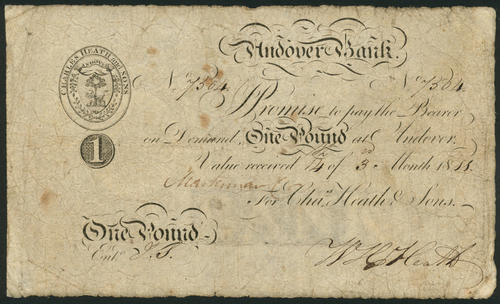 Andover Bank.
CHARLES HEATH and SONS
ANDOVER
No. 7504 No. 7504
I Promise to pay the Bearer
on Demand, One Pound at Andover.
1
Value received 14 of 3 Month 1811
For Chas. Heath & Sons.
One Pound
Entd. J. T.
W H Heath